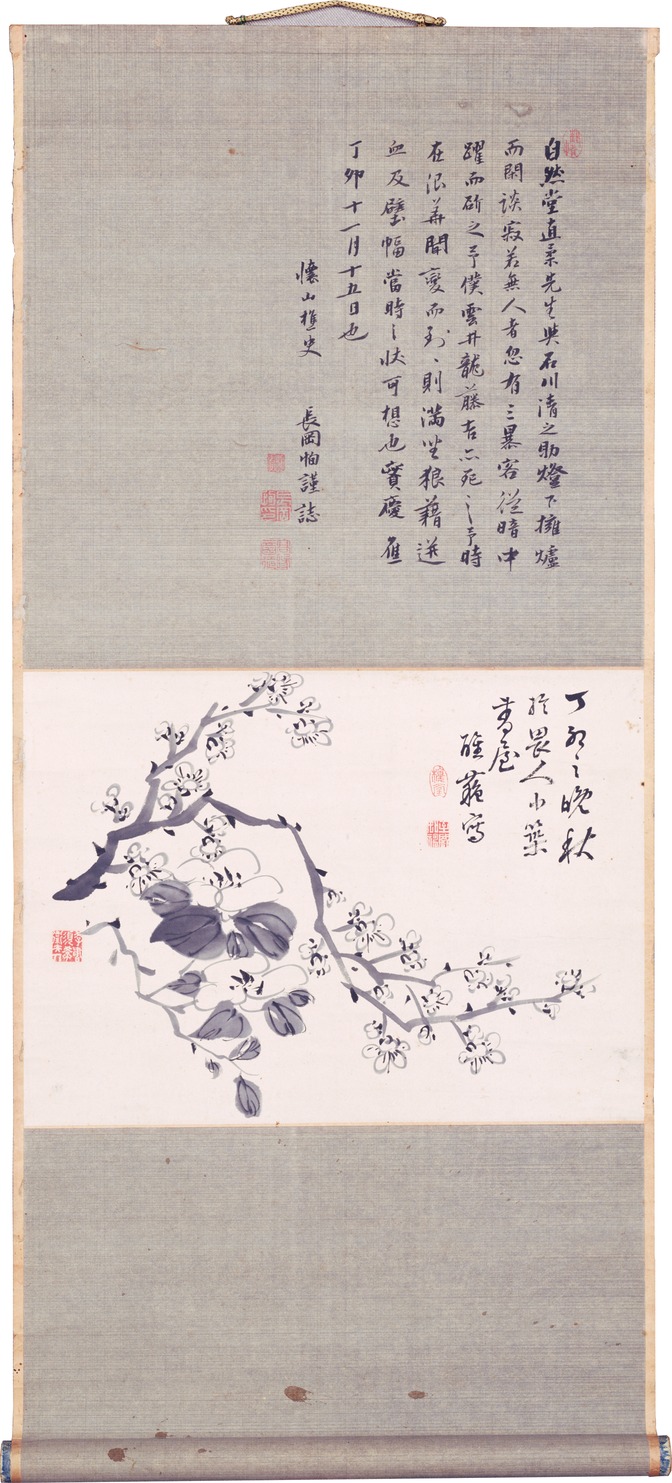 自然堂直柔先生與石川清之助燈下擁爐
而閑談寂若無人者忽有三暴客從暗中
躍而斫之予僕雲井龍藤吉亦死之予時
在浪華聞變而到々則滿坐狼藉迸
血及壁幅當時之状可想也實慶應
丁卯十一月十五日也
懐山樵史 長岡恂謹誌
丁卯之晩秋
於畏人小築
書屋
醉蘓寫